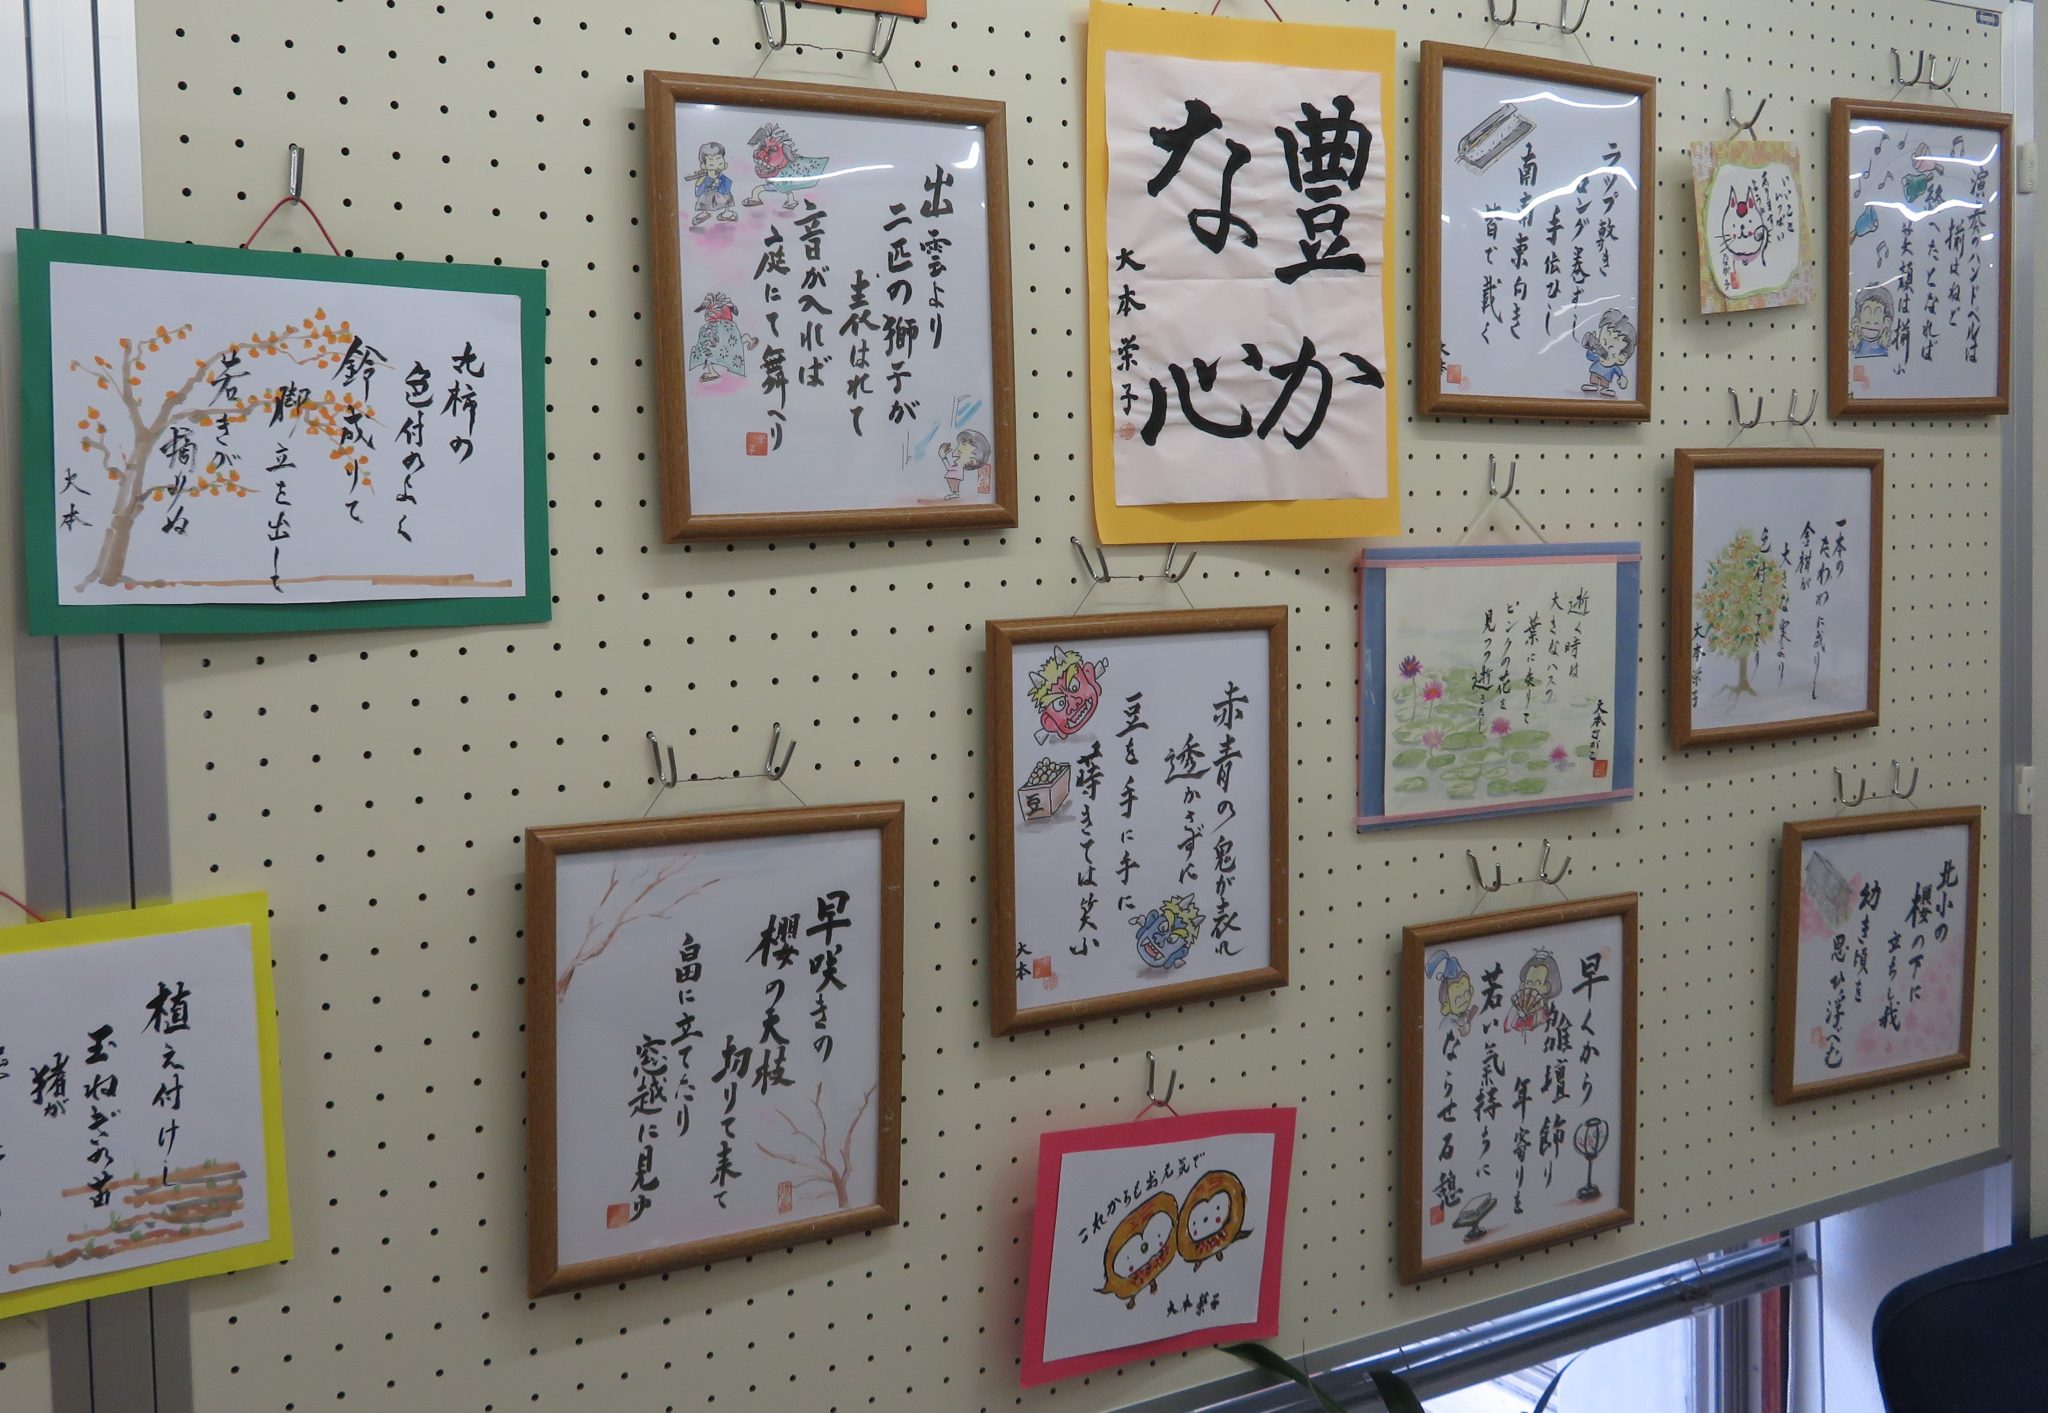 丸柿の
色付のよく
鈴成りて
脚立を出して
若きが
摘めぬ
大本
出雲より
二匹の獅子が
表はれて
音が入れば
庭にて舞へり
豊か
な心
大本栄子
ラップ敷き
ロング巻ずし
手伝ひし
南南東向き
皆で戴く
大本
演奏のハンドベルは
揃はねど
終へたとなれば
笑顔は揃ふ
一本の
たわわに成りし
金柑が
大きな実より
色付きてをり
大本栄子
逝く時は
大きなハスの
葉に乗りて
ピンクの花を
見つつ逝きたし
赤青の鬼が表れ
透かさずに
豆を手に手に
蒔きては笑ふ
大本
豆
早咲きの
櫻の天枝
切りて来て
畠に立てたり
窓越に見ゆ
植え付けし
玉ねぎの苗
猪が
これからもお元気で
大本栄子
早くから
雛壇飾り
年寄りを
若い氣持ちに
ならせる憩
北小の
櫻の下に
立ちし我
幼き頃を
思ひ浮べむ